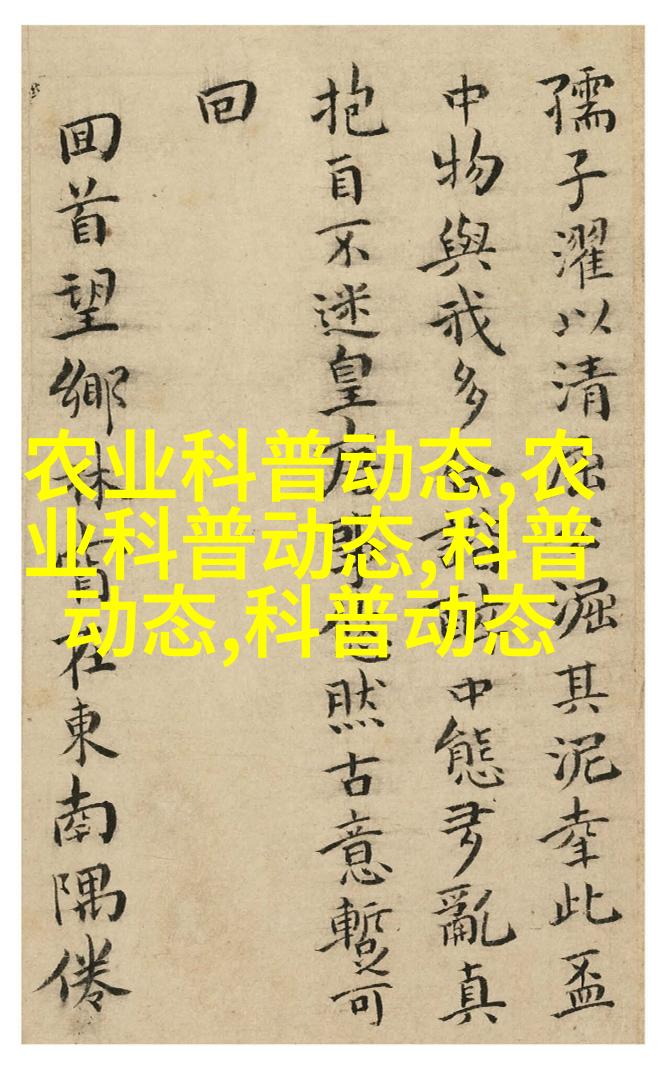 孺子濯以清屈子淈其泥奉此盃
中物與我多合離醉中態多亂真
抱自不迷皇唐開元然古意暫可
回
回首望鄉林皆在東南隅倦
农业科普动态,农
业科普动态,科普
动态,科普动态